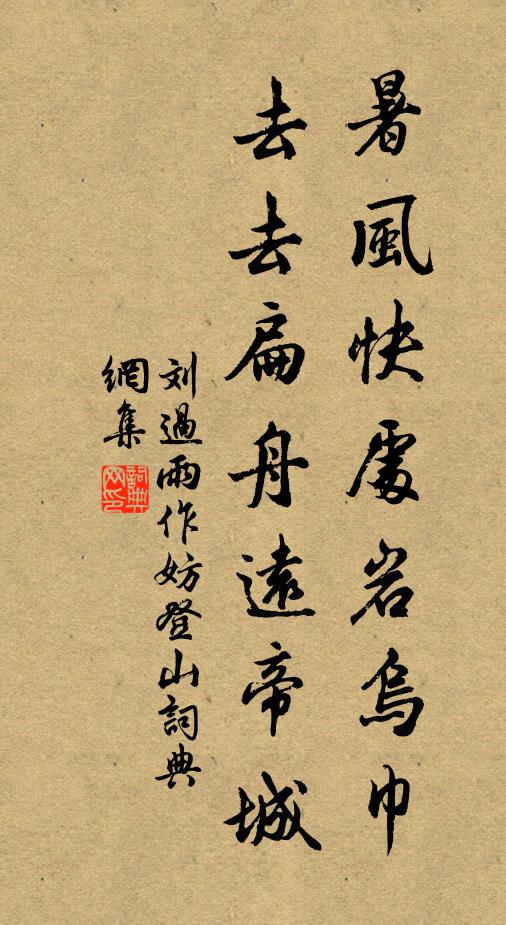 暑風快處岩烏巾
去去扁舟遠帝城
刘過雨作妨登山詞典
網集
詞典
网印